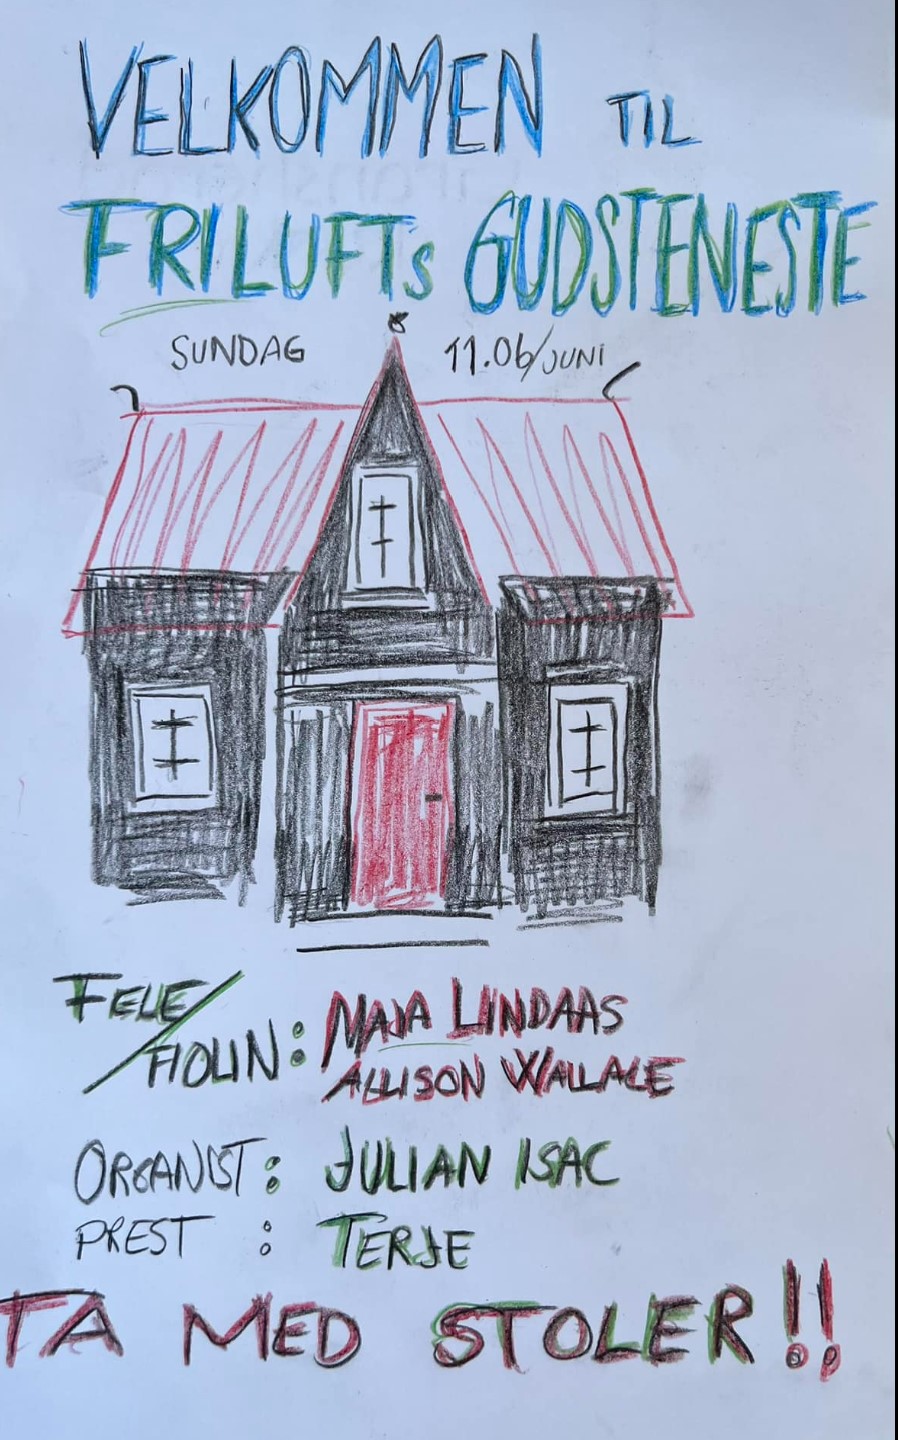 VELKOMMEN TIL
FRILUFTS GUDSTENESTE
SUNDAG 11.06/JUNI
FELE/
FIOLIN: MAJA LINDAAS
ALLISON WALLACE
ORGANIST: JULIAN ISAC
PREST : TERJE
TA MED STOLER!!